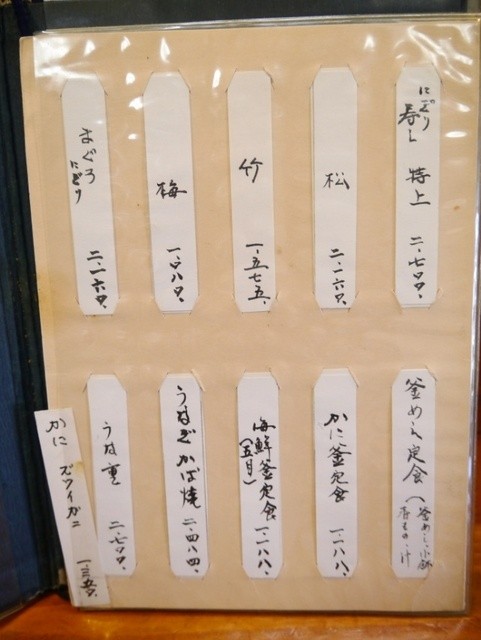 にぎり寿し 特上 二、七〇〇、
松 二、一六〇、
竹 一、五七五、
梅 一、〇八〇、
まぐろにぎり 二、一六〇、
釜めし定食（釜めし、小鉢 香もの、汁
かに釜定食 一、一八八、
海鮮釜定食（五月） 一、一八八、
うなぎかば焼 二、四八四、
うな重 二、七〇〇、
かに ズワイガニ